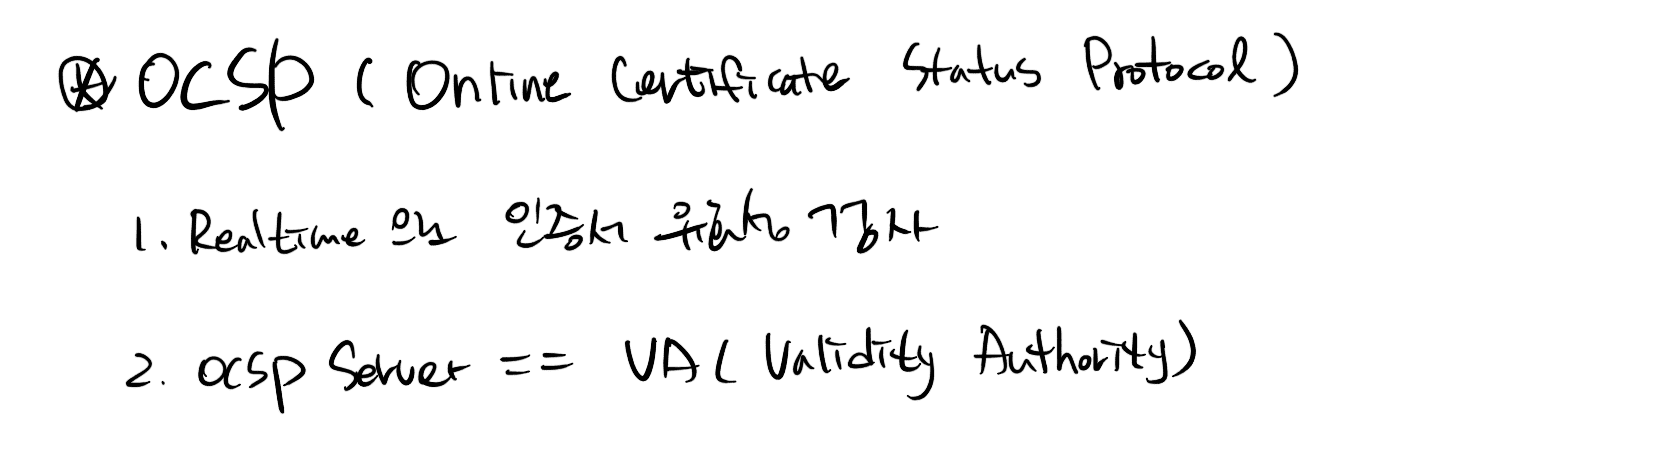 ⊛ OCSP ( Online Certificate Status Protocol )
1. Realtime 으로 인증서 유효성 검사
2. OCSP Server == VA ( Validity Authority )